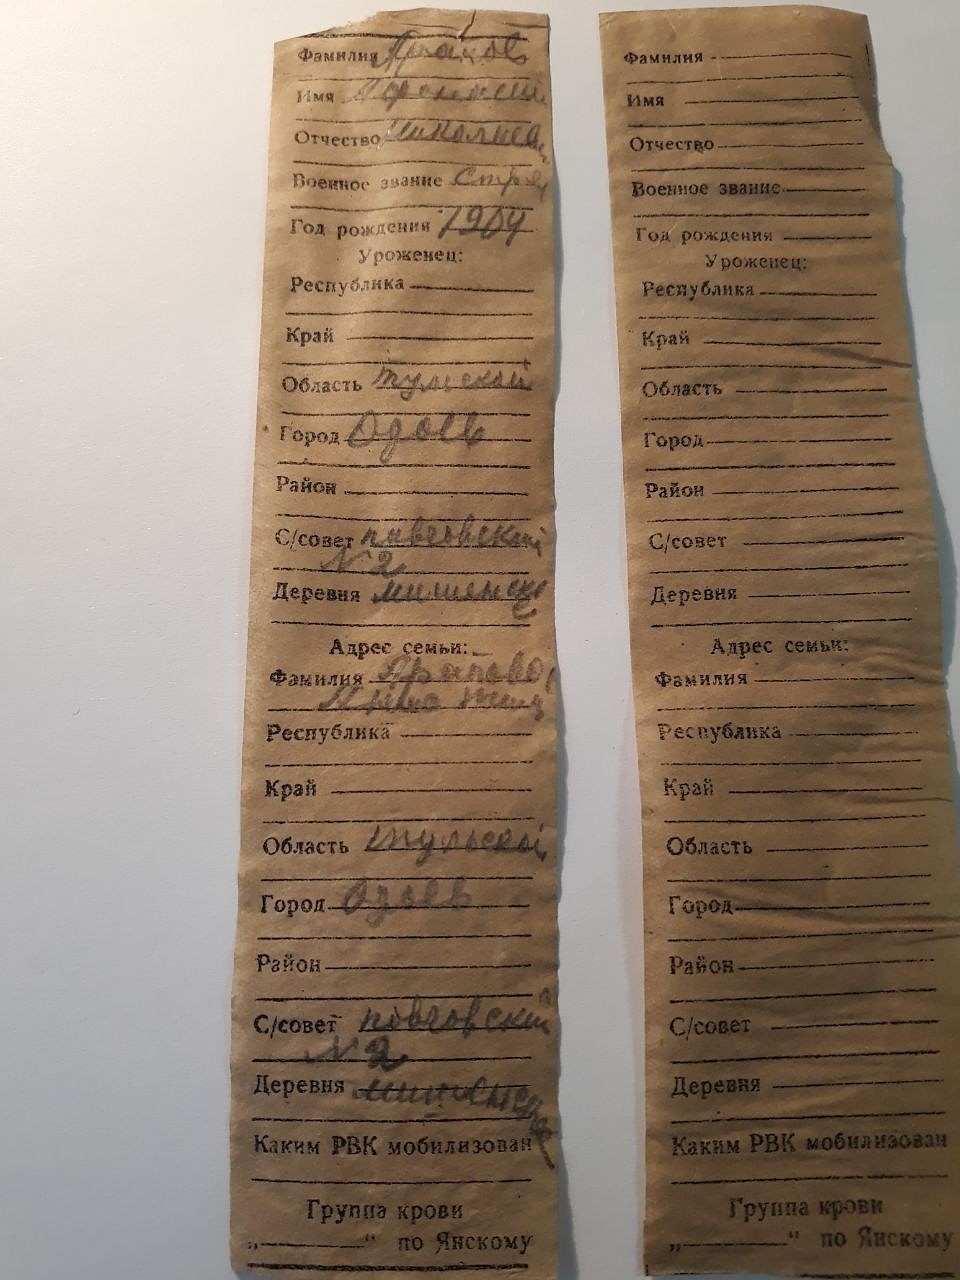 Фамилия Арапов
Имя Афонасий
Отчество Николаев
Военное звание Стрел
Год рождения 1904
Уроженец:
Республика
Край
Область тульской
Город Одоев
Район
С/совет
№ 2
Деревня мишенск
Адрес семьи:
Фамилия Арапово
Республика
Край
Область тульской
Город Одоев
Район
С/совет
№ 2
Деревня
Каким РВК мобилизован
Группа крови
„ “ по Янскому
Фамилия
Имя
Отчество
Военное звание
Год рождения
Уроженец:
Республика
Край
Область
Город
Район
С/совет
Деревня
Адрес семьи:
Фамилия
Республика
Край
Область
Город
Район
С/совет
Деревня
Каким РВК мобилизован
Группа крови
„ “ по Янскому